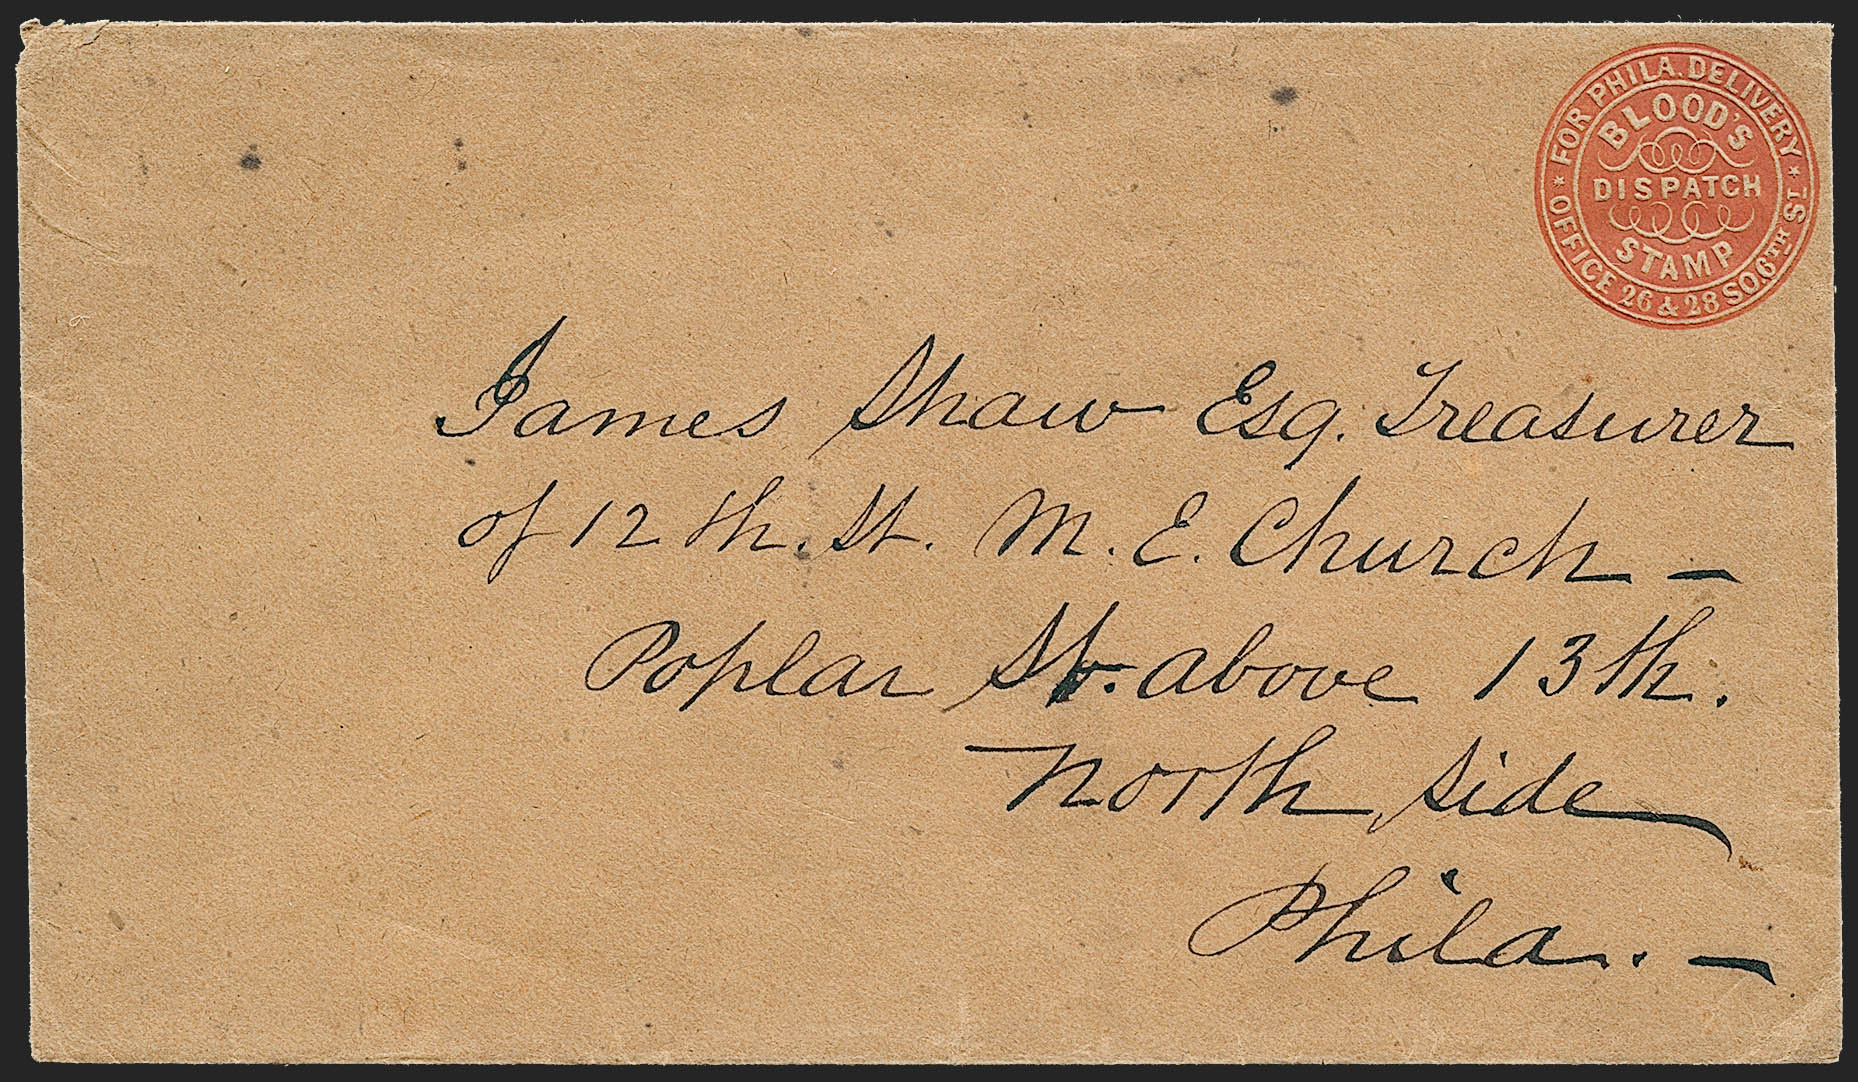 FOR PHILA. DELIVERY
BLOOD'S
DISPATCH
STAMP
* OFFICE 26 & 28 SO. 6TH ST *
James Shaw Esq. Treasurer
of 12th. St. M. E. Church —
Poplar St. above 13th.
North side
Phila. —